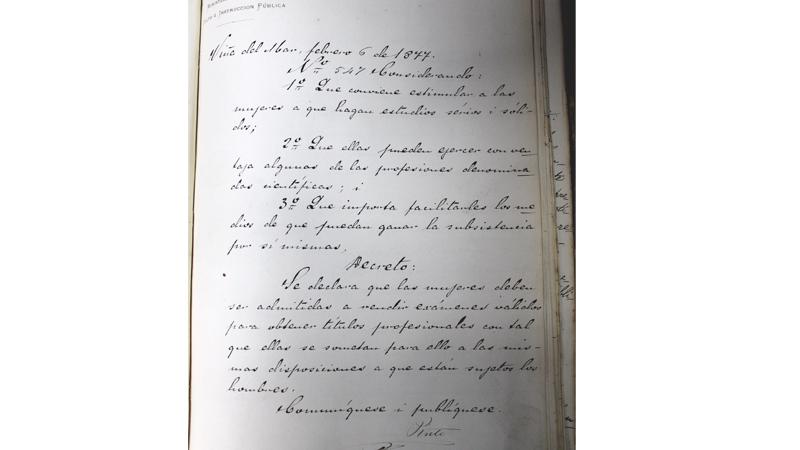 Instrucción Pública
Viña del Mar, febrero 6 de 1877.
Nº 547 Considerando:
1º Que conviene estimular a las
mujeres a que hagan estudios sérios i sóli-
dos;
2º Que ellas pueden ejercer con ven-
taja algunas de las profesiones denomina-
das científicas; i
3º Que importa facilitarles los me-
dios de que puedan ganar la subsistencia
por sí mismas,
Decreto:
Se declara que las mujeres deben
ser admitidas a rendir exámenes válidos
para obtener títulos profesionales con tal
que ellas se sometan para ello a las mis-
mas disposiciones a que están sujetos los
hombres.
Comuníquese i publíquese.
Pinto